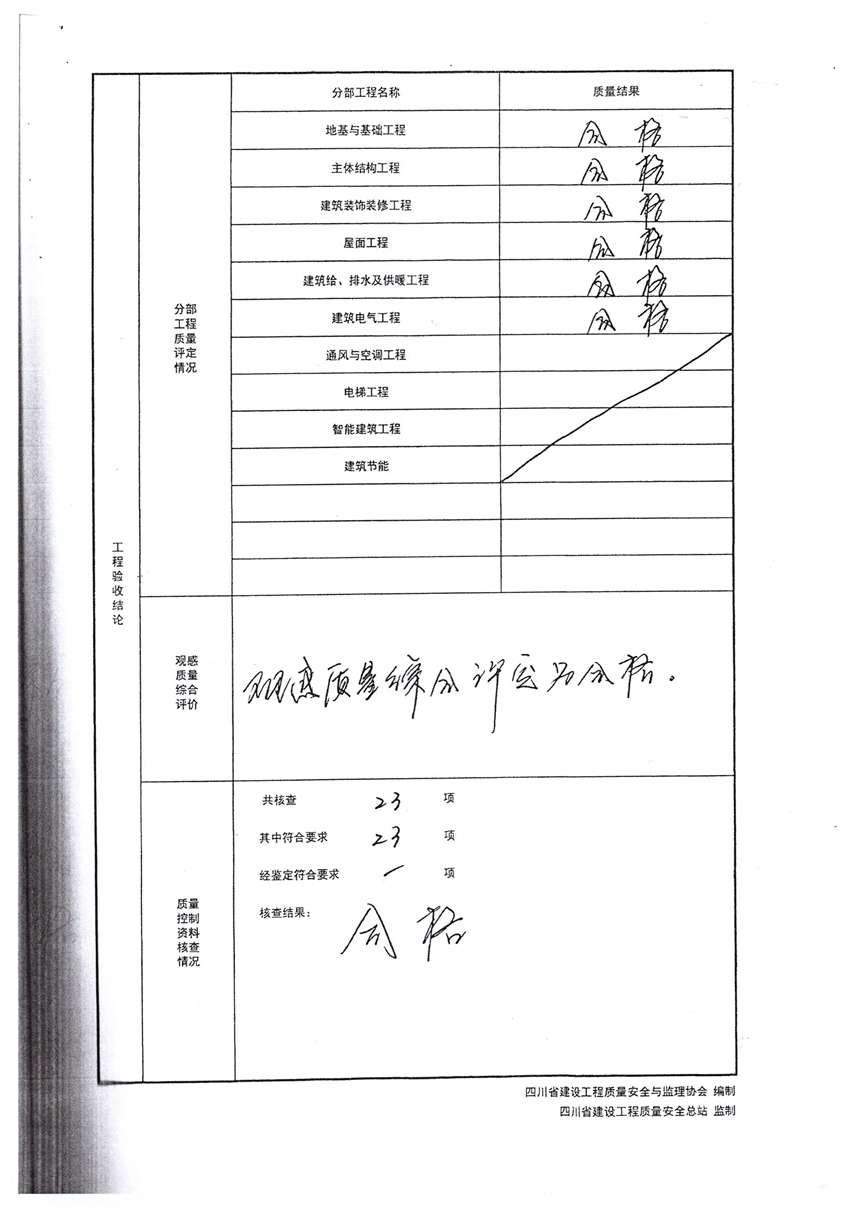 分部工程名称 质量结果
地基与基础工程 合格
主体结构工程 合格
建筑装饰装修工程 合格
屋面工程 合格
建筑给、排水及供暖工程 合格
建筑电气工程 合格
通风与空调工程
电梯工程
智能建筑工程
建筑节能
分部
工程
质量
评定
情况
工程验收结论
观感
质量
综合
评价
观感质量综合评定为合格。
共核查 23 项
其中符合要求 23 项
经鉴定符合要求 一 项
核查结果: 合格
质量
控制
资料
核查
情况
四川省建设工程质量安全与监理协会 编制
四川省建设工程质量安全总站 监制